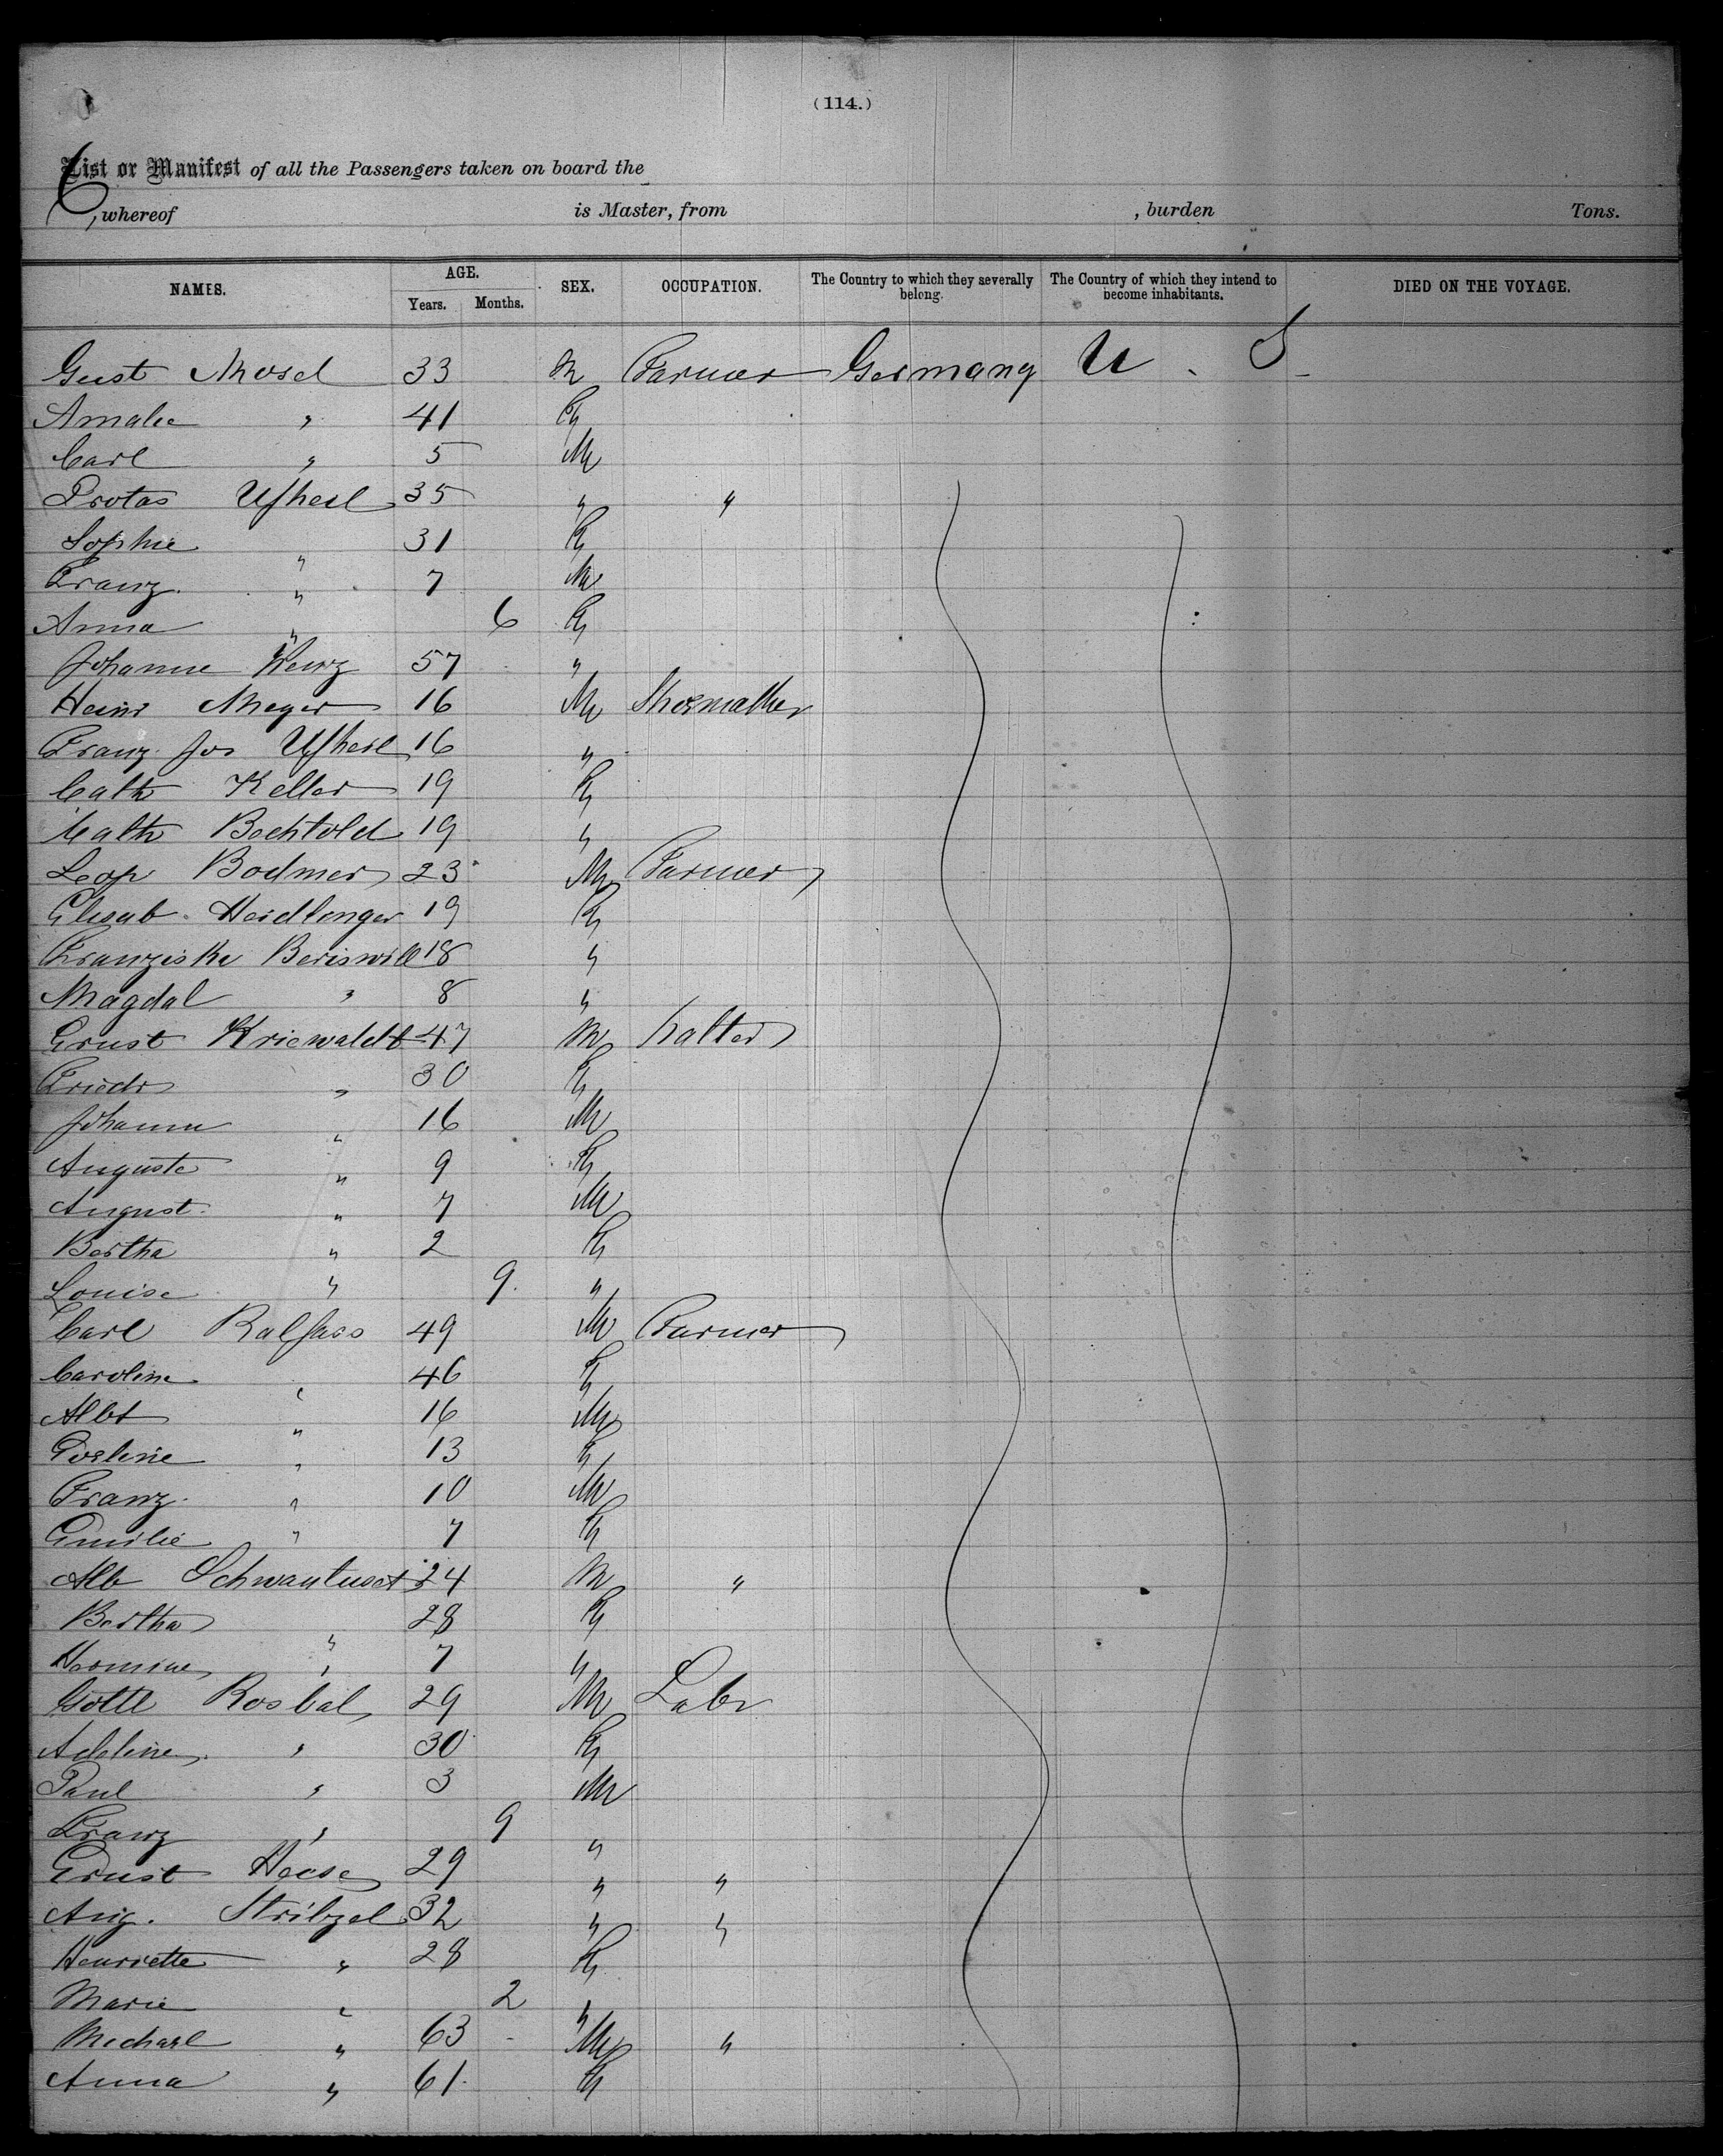 (114.)
6
List or Manifest of all the Passengers taken on board the
, whereof is Master, from , burden Tons.
NAMES. AGE. Years. Months. SEX. OCCUPATION. The Country to which they severally belong. The Country of which they intend to become inhabitants. DIED ON THE VOYAGE.
Gust Mosel 33 M Farmer Germany U. S
Amalie " 41 F
Carl " 5 M
Protas Ufheil 35 " "
Sophie " 31 F
Franz " 7 M
Anna " 6 F
Johanne 57 "
Heinr Meyer 16 M Shoemaker
Franz Jos Ufheil 16 "
Cath Keller 19 F
Cath Bechtold 19 "
Leop Bodmer 23 M Farmer
Elisab. Heidlinger 19 F
Franziska Beriswill 18 "
Magdal " 8 "
Ernst Kriewaldt 47 M hatter
Friedr " 30 F
Johann " 16 M
Auguste " 9 F
August " 7 M
Bertha " 2 F
Louise " 9 "
Carl Ralfass 49 M Farmer
Caroline " 46 F
Albt " 16 M
" 13 F
Franz " 10 M
Emilie " 7 F
Alb 24 M "
Bertha " 28 F
Hermine " 7 "
Gottl Rosbal 29 M Labr
Adeline " 30 F
Paul " 3 M
Franz " 9 "
Ernst Heese 29 " "
Aug. Stribzel 32 " "
Henriette " 28 F
Marie " 2 "
Michael " 63 M "
Anna " 61 F